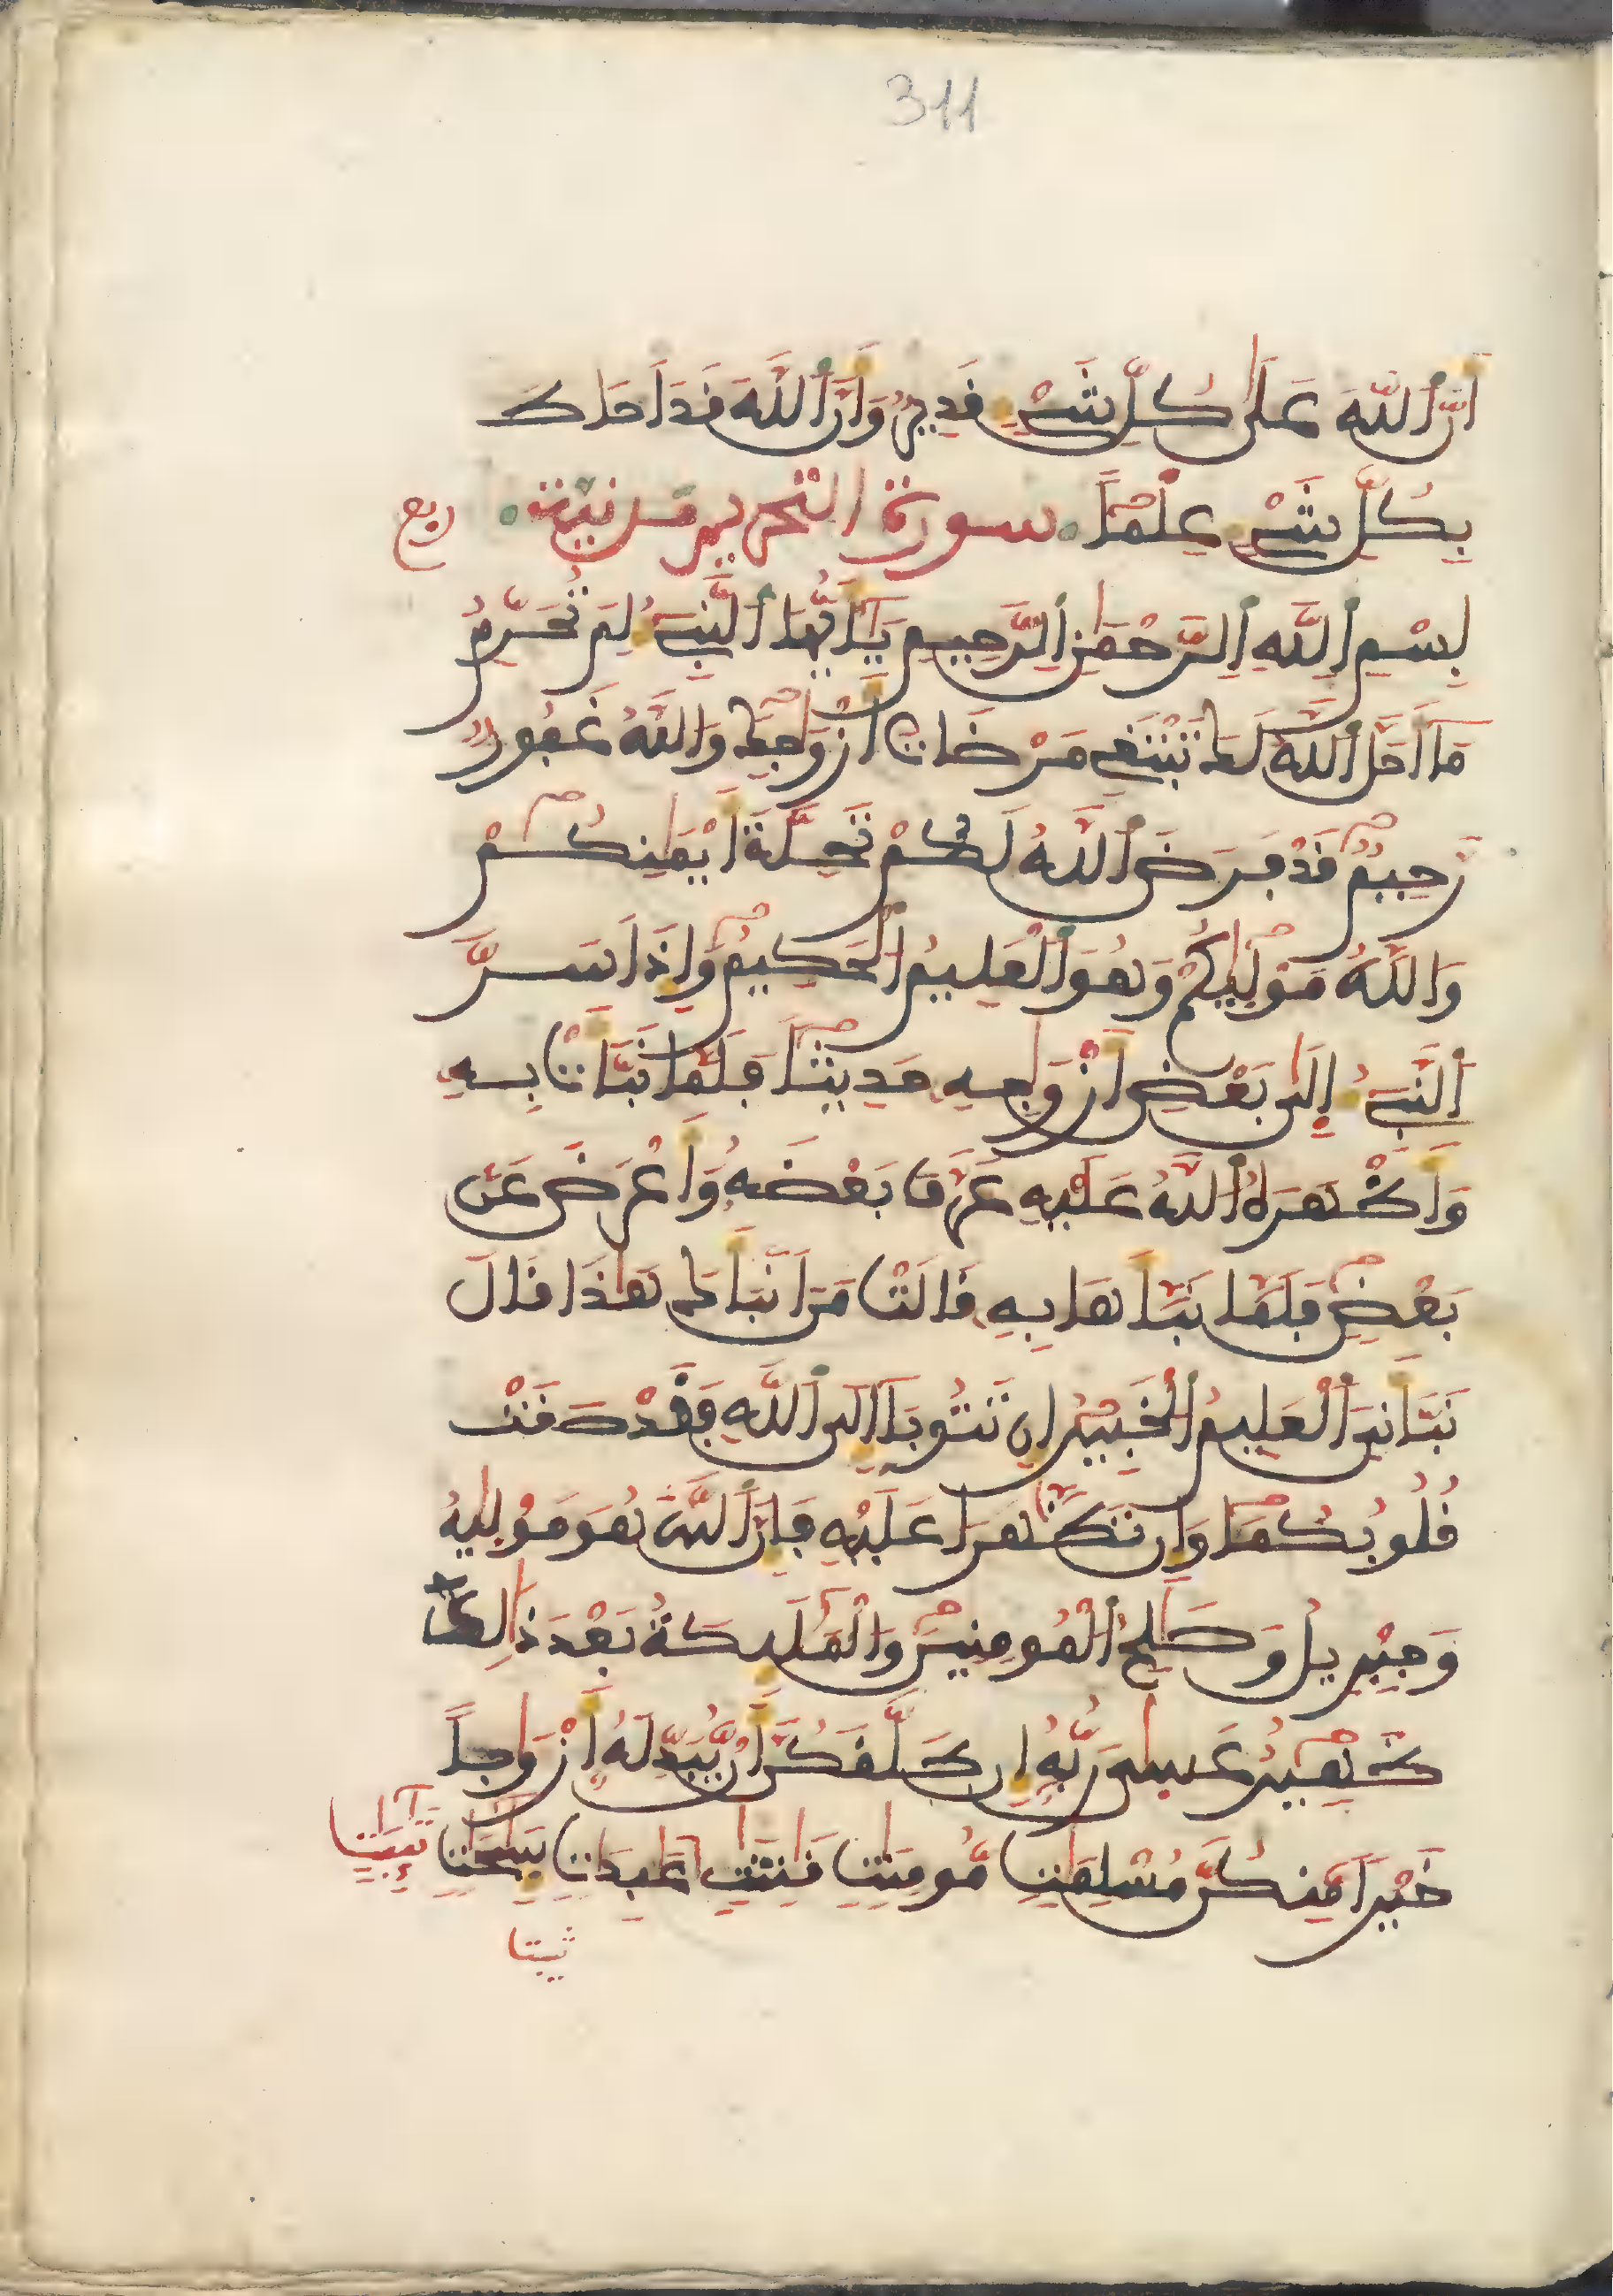 311
أَنَّ اَللَّهَ عَلَىٰ كُلِّ شَيْءٍ قَدِيرٌ وَأَنَّ اَللَّهَ قَدَ اَحَاطَ
بِكُلِّ شَيْءٍ عِلْماً سورة التحريم مدنية ربع
بِسْمِ اِللَّهِ اِلرَّحْمَٰنِ اِلرَّحِيمِ يَٰأَيُّهَا اَلنَّبِيءُ لِمَ تُحَرِّمُ
مَا أَحَلَّ اَللَّهُ لَكَ تَبْتَغِي مَرْضَاتَ أَزْوَٰجِكَ وَاللَّهُ غَفُورٌ
رَّحِيمٌ قَدْ فَرَضَ اَللَّهُ لَكُمْ تَحِلَّةَ أَيْمَٰنِكُمْ
وَاللَّهُ مَوْلَيٰكُمْ وَهُوَ اَلْعَلِيمُ اُلْحَكِيمُ وَإِذَ اَسَرَّ
اَلنَّبِيءُ إِلَىٰ بَعْضِ أَزْوَٰجِهِ حَدِيثاً فَلَمَّا نَبَّأَتْ بِهِ
وَأَظْهَرَهُ اُللَّهُ عَلَيْهِ عَرَّفَ بَعْضَهُ وَأَعْرَضَ عَن
بَعْضٍ فَلَمَّا نَبَّأَهَا بِهِ قَالَتْ مَنَ اَنۢبَأَكَ هَٰذَا قَالَ
نَبَّأَنِيَ اَلْعَلِيمُ اُلْخَبِيرُ إِن تَتُوبَا إِلَى اَللَّهِ فَقَدْ صَغَتْ
قُلُوبُكُمَا وَإِن تَظَّٰهَرَا عَلَيْهِ فَإِنَّ اَللَّهَ هُوَ مَوْلَيٰهُ
وَجِبْرِيلُ وَصَٰلِحُ اُلْمُومِنِينَ وَالْمَلَٰئِكَةُ بَعْدَ ذَٰلِكَ
ظَهِيرٌ عَسَىٰ رَبُّهُ إِن طَلَّقَكُنَّ أَنْ يُّبَدِّلَهُ أَزْوَٰجاً
خَيْراً مِّنكُنَّ مُسْلِمَٰتٍ مُّومِنَٰتٍ قَٰنِتَٰتٍ عَٰبِدَٰتٍ سَٰئِحَٰتٍ تَٰئِبَٰتٍ
ثيبت